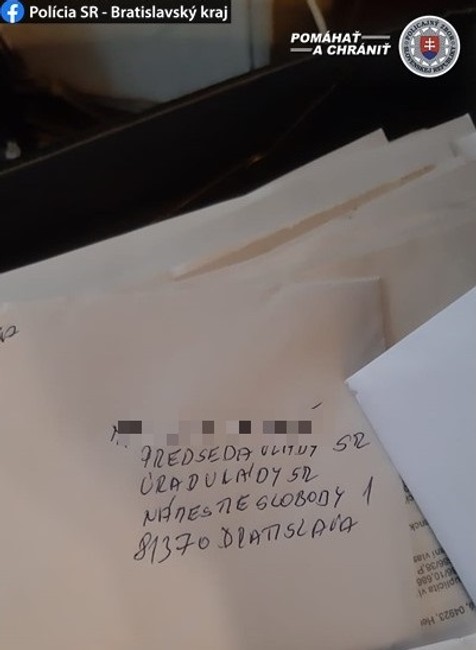 Polícia SR - Bratislavský kraj
POMÁHAŤ
A CHRÁNIŤ
POLICAJNÝ ZBOR
SLOVENSKEJ REPUBLIKY
PREDSEDA VLÁDY SR
ÚRAD VLÁDY SR
NÁMESTIE SLOBODY 1
81370 BRATISLAVA
04923